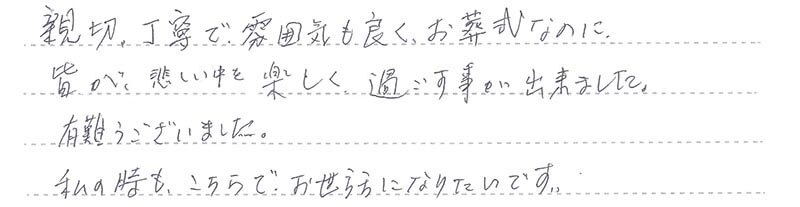 親切、丁寧で、雰囲気も良く、お葬式なのに、
皆が、悲しい中を楽しく、過ごす事が出来ました。
有難うございました。
私の時も、こちらで、お世話になりたいです。